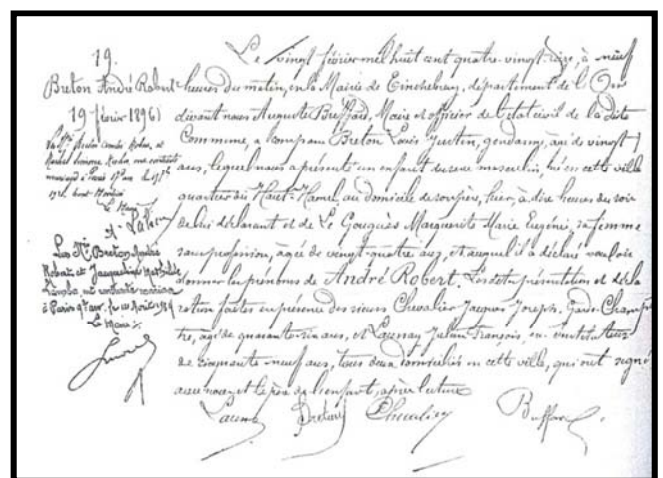 19.
Breton André Robert
19 février 1896)
André Robert et
Simone Kahn, ont contracté
mariage à Paris 17e arr. le 15
Le Maire
Les Mrs Breton André
Robert et Jacqueline Mathilde
Lamba, ont contracté mariage
à Paris 9e arr. le 14 Août 1934
Le Maire
Le vingt février mil huit cent quatre-vingt-seize, à neuf
heures du matin, en la Mairie de Tinchebray, département de l'Orne
devant nous Auguste Buffard, Maire et officier de l'état civil de la dite
Commune, a comparu Breton Louis Justin, gendarme, âgé de vingt
ans, lequel nous a présenté un enfant du sexe masculin, né en cette ville
quartier du Haut-Hamel, au domicile de son père, hier, à dix heures du soir
de lui déclarant et de Le Gouguès Marguerite Marie Eugénie, sa femme
sans profession, âgée de vingt-quatre ans, et auquel il a déclaré vouloir
donner les prénoms de André Robert. Les dites présentation et décla
ration faites en présence des sieurs Chevalier Jacques Joseph, Garde-Champê
tre, âgé de quarante-six ans, et Launay Julien François, ex-Instituteur
de cinquante-neuf ans, tous deux domiciliés en cette ville, qui ont signé
avec nous et le père de l'enfant, après lecture
Launay Breton Chevalier Buffard